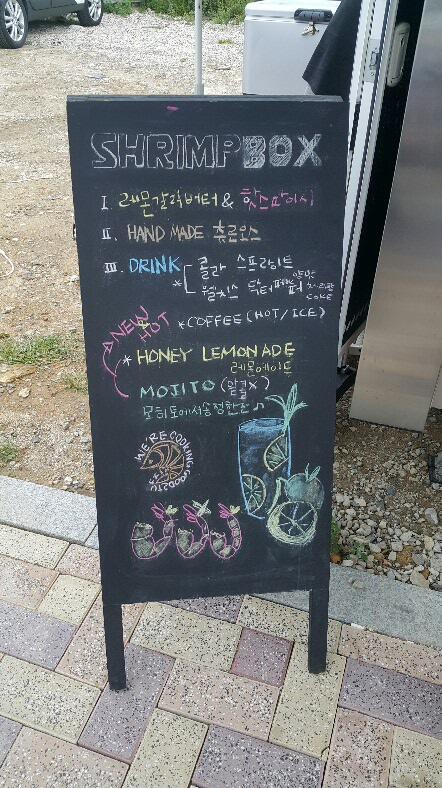 SHRIMP BOX
I. 레몬갈릭버터 & 핫스파이시
II. HAND MADE 츄로스
III. DRINK 콜라 스프라이트
* 웰치스 닥터페퍼
COKE
*COFFEE (HOT/ICE)
NEW HOT
* HONEY LEMONADE
레몬에이드
MOJITO (알콜X)
모히또에서송정한잔♪
WE'RE COOKING GOOD STUFF